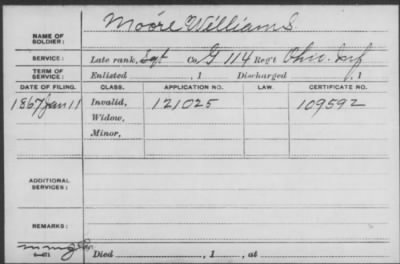 Moore William S.
NAME OF SOLDIER:
SERVICE: Late rank, Sgt Co. G 114 Reg't Ohio Inf
TERM OF SERVICE: Enlisted , 1 Discharged , 1
DATE OF FILING. CLASS. APPLICATION NO. LAW. CERTIFICATE NO.
1867 Jan 11 Invalid, 121025 109592
Widow,
Minor,
ADDITIONAL SERVICES:
REMARKS:
Died , 1 , at